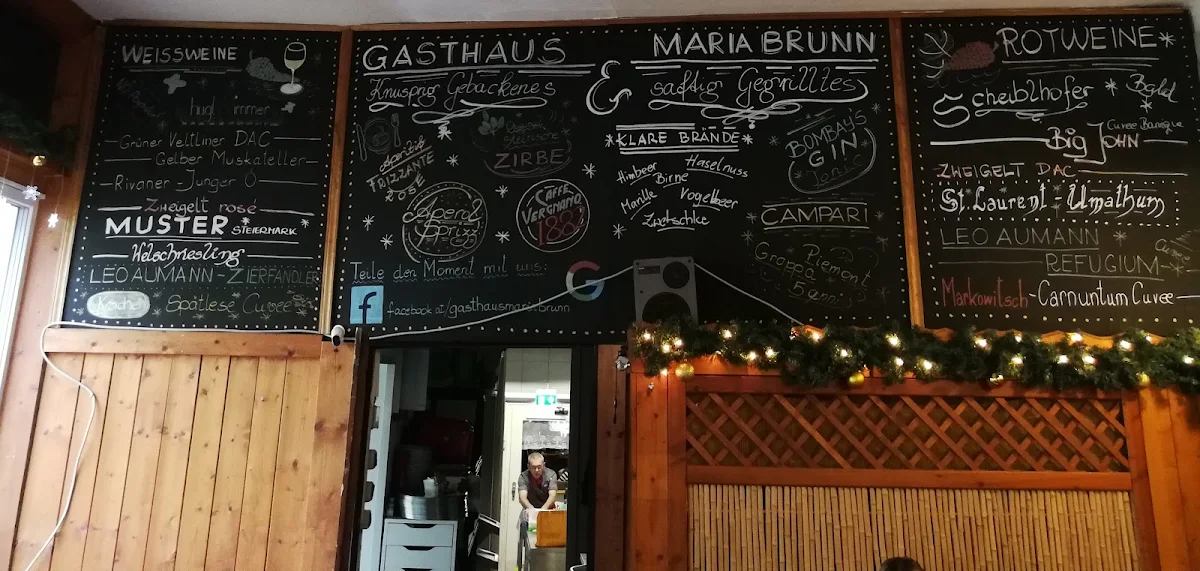 WEISSWEINE
hugl immer
Grüner Veltliner DAC
Gelber Muskateller
Rivaner - Junger Ö
Zweigelt rosé
MUSTER STEIERMARK
Welschriesling
LEO AUMANN - ZIERFANDLER
Kracher Spätlese Cuvee
GASTHAUS MARIA BRUNN
Knusprig Gebackenes & saftig Gegrilltes
Aperitif
FRIZZANTE
ROSÉ
ZIRBE
Aperol
Sprizz
CAFFÈ
VERGNANO
1882
Teile den Moment mit uns:
f facebook.at/gasthausmariabrunn
G
KLARE BRÄNDE
Himbeer Haselnuss
Birne
Marille Vogelbeer
Zwetschke
BOMBAYS
GIN
Tonic
CAMPARI
Piemont
Grappa 5 anni
ROTWEINE
Scheiblhofer Bgld
Big John Cuvee Barrique
ZWEIGELT DAC
St. Laurent - Umathum
LEO AUMANN
REFUGIUM
Cuvee
Markowitsch - Carnuntum Cuvee